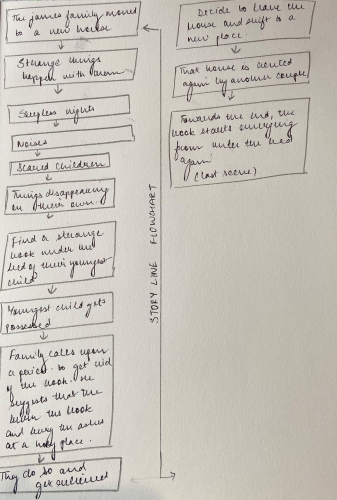 The James family moved
to a new house
Strange things
happen with them
Sleepless nights
Noises
Scared children
Things disappearing
on their own.
Find a strange
book under the
bed of their youngest
child
Youngest child gets
possessed
Family calls upon
a priest to get rid
of the book. He
suggests that the
burn the book
and bury the ashes
at a holy place.
They do so and
get relieved
STORY LINE FLOWCHART
Decide to leave the
house and shift to a
new place.
That house is rented
again by another couple
Towards the end, the
book starts emerging
from under the bed
again
(last scene)